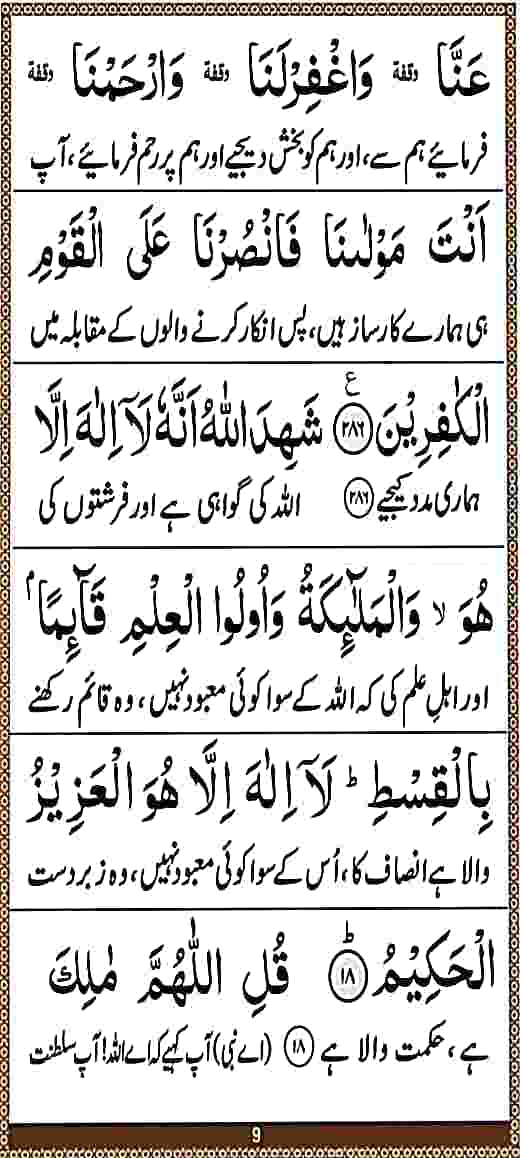 عَنَّا وقفة وَاغْفِرْلَنَا وقفة وَارْحَمْنَا وقفة
فرمائیے ہم سے، اور ہم کو بخش دیجیے اور ہم پر رحم فرمائیے، آپ
اَنْتَ مَوْلٰىنَا فَانْصُرْنَا عَلَى الْقَوْمِ
ہی ہمارے کارساز ہیں، پس انکار کرنے والوں کے مقابلہ میں
الْكٰفِرِيْنَ ﴿۲۸۶﴾ ع شَهِدَ اللّٰهُ اَنَّهٗ لَاۤ اِلٰهَ اِلَّا
ہماری مدد کیجیے ﴿۲۸۶﴾ اللہ کی گواہی ہے اور فرشتوں کی
هُوَ ۙ وَالْمَلٰٓئِكَةُ وَاُولُوا الْعِلْمِ قَآئِمًۢا
اور اہلِ علم کی کہ اللہ کے سوا کوئی معبود نہیں، وہ قائم رکھنے
بِالْقِسْطِ ؕ لَاۤ اِلٰهَ اِلَّا هُوَ الْعَزِيْزُ
والا ہے انصاف کا، اُس کے سوا کوئی معبود نہیں، وہ زبردست
الْحَكِيْمُ ؕ﴿۱۸﴾ قُلِ اللّٰهُمَّ مٰلِكَ
ہے، حکمت والا ہے ﴿۱۸﴾ (اے نبی) آپ کہیے کہ اے اللہ! آپ سلطنت
9